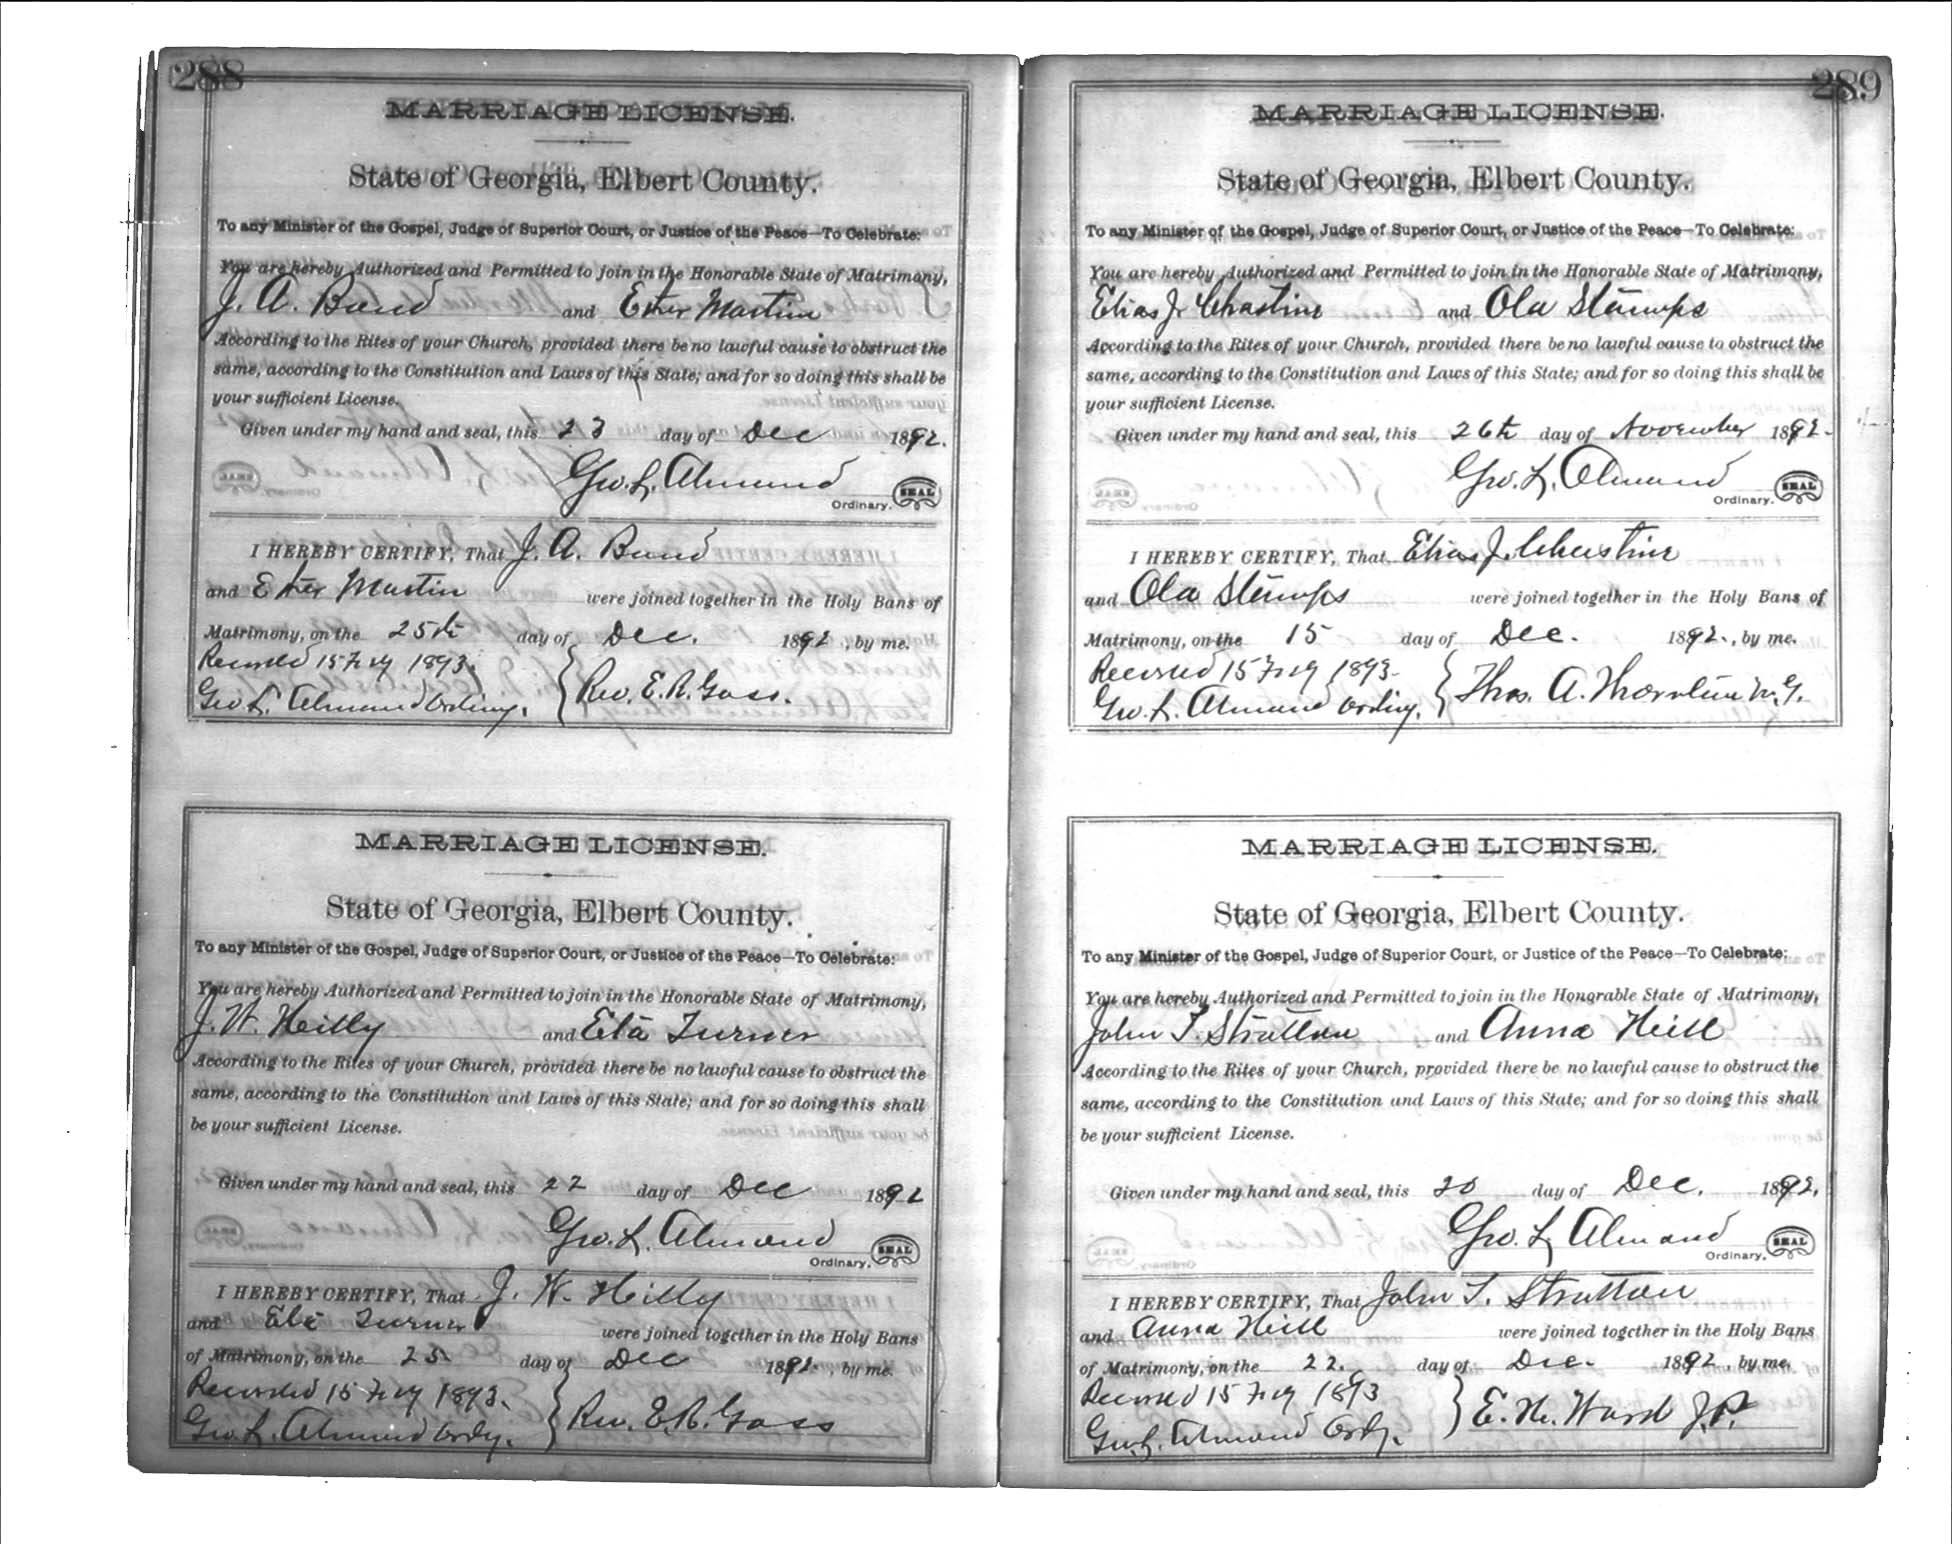 288
MARRIAGE LICENSE.
State of Georgia, Elbert County.
To any Minister of the Gospel, Judge of Superior Court, or Justice of the Peace—To Celebrate:
You are hereby Authorized and Permitted to join in the Honorable State of Matrimony,
J. A. Bond and Ester Martin
According to the Rites of your Church, provided there be no lawful cause to obstruct the
same, according to the Constitution and Laws of this State; and for so doing this shall be
your sufficient License.
Given under my hand and seal, this 23 day of Dec 1892.
Geo. L. Almand
Ordinary. SEAL
I HEREBY CERTIFY, That J. A. Bond
and Ester Martin were joined together in the Holy Bans of
Matrimony, on the 25th day of Dec. 1892, by me.
Recorded 15 Feby 1893.
Geo L. Almand Ordiny. Rev. E. R. Goss.
MARRIAGE LICENSE.
State of Georgia, Elbert County.
To any Minister of the Gospel, Judge of Superior Court, or Justice of the Peace—To Celebrate:
You are hereby Authorized and Permitted to join in the Honorable State of Matrimony,
J. W. Heilly and Eta Turner
According to the Rites of your Church, provided there be no lawful cause to obstruct the
same, according to the Constitution and Laws of this State; and for so doing this shall
be your sufficient License.
Given under my hand and seal, this 22 day of Dec 1892
Geo. L. Almand
Ordinary. SEAL
I HEREBY CERTIFY, That J. W. Heilly
and Eta Turner were joined together in the Holy Bans
of Matrimony, on the 25 day of Dec 1892, by me.
Recorded 15 Feby 1893.
Geo L. Almand Ordy. Rev. E. R. Goss
289
MARRIAGE LICENSE.
State of Georgia, Elbert County.
To any Minister of the Gospel, Judge of Superior Court, or Justice of the Peace—To Celebrate:
You are hereby Authorized and Permitted to join in the Honorable State of Matrimony,
Elias J. Chastine and Ola Stamps
According to the Rites of your Church, provided there be no lawful cause to obstruct the
same, according to the Constitution and Laws of this State; and for so doing this shall be
your sufficient License.
Given under my hand and seal, this 26th day of November 1892.
Geo. L. Almand
Ordinary. SEAL
I HEREBY CERTIFY, That Elias J. Chastine
and Ola Stamps were joined together in the Holy Bans of
Matrimony, on the 15 day of Dec. 1892., by me.
Recorded 15 Feby 1893.
Geo. L. Almand Ordiny. Thos. A. Thornton M.G.
MARRIAGE LICENSE.
State of Georgia, Elbert County.
To any Minister of the Gospel, Judge of Superior Court, or Justice of the Peace—To Celebrate:
You are hereby Authorized and Permitted to join in the Honorable State of Matrimony,
John T. Stratton and Anna Heill
According to the Rites of your Church, provided there be no lawful cause to obstruct the
same, according to the Constitution and Laws of this State; and for so doing this shall
be your sufficient License.
Given under my hand and seal, this 20 day of Dec. 1892.
Geo. L. Almand
Ordinary. SEAL
I HEREBY CERTIFY, That John T. Stratton
and Anna Heill were joined together in the Holy Bans
of Matrimony, on the 22. day of Dec. 1892, by me.
Recorded 15 Feby 1893
Geo. L. Almand Ordy. E. H. Ward J.P.